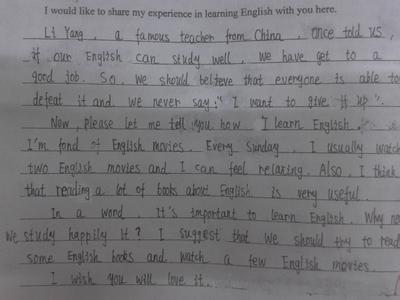 I would like to share my experience in learning English with you here.
Li Yang, a famous teacher from China, once told us,
if our English can study well, we have get to a
good job. So, we should believe that everyone is able to
defeat it and we never say: " I want to give it up".
Now, please let me tell you how I learn English.
I'm fond of English movies. Every Sunday, I usually watch
two English movies and I can feel relaxing. Also, I think
that reading a lot of books about English is very useful
In a word, It's important to learn English. Why not
we study happily it? I suggest that we should try to read
some English books and watch a few English movies.
I wish you will love it.